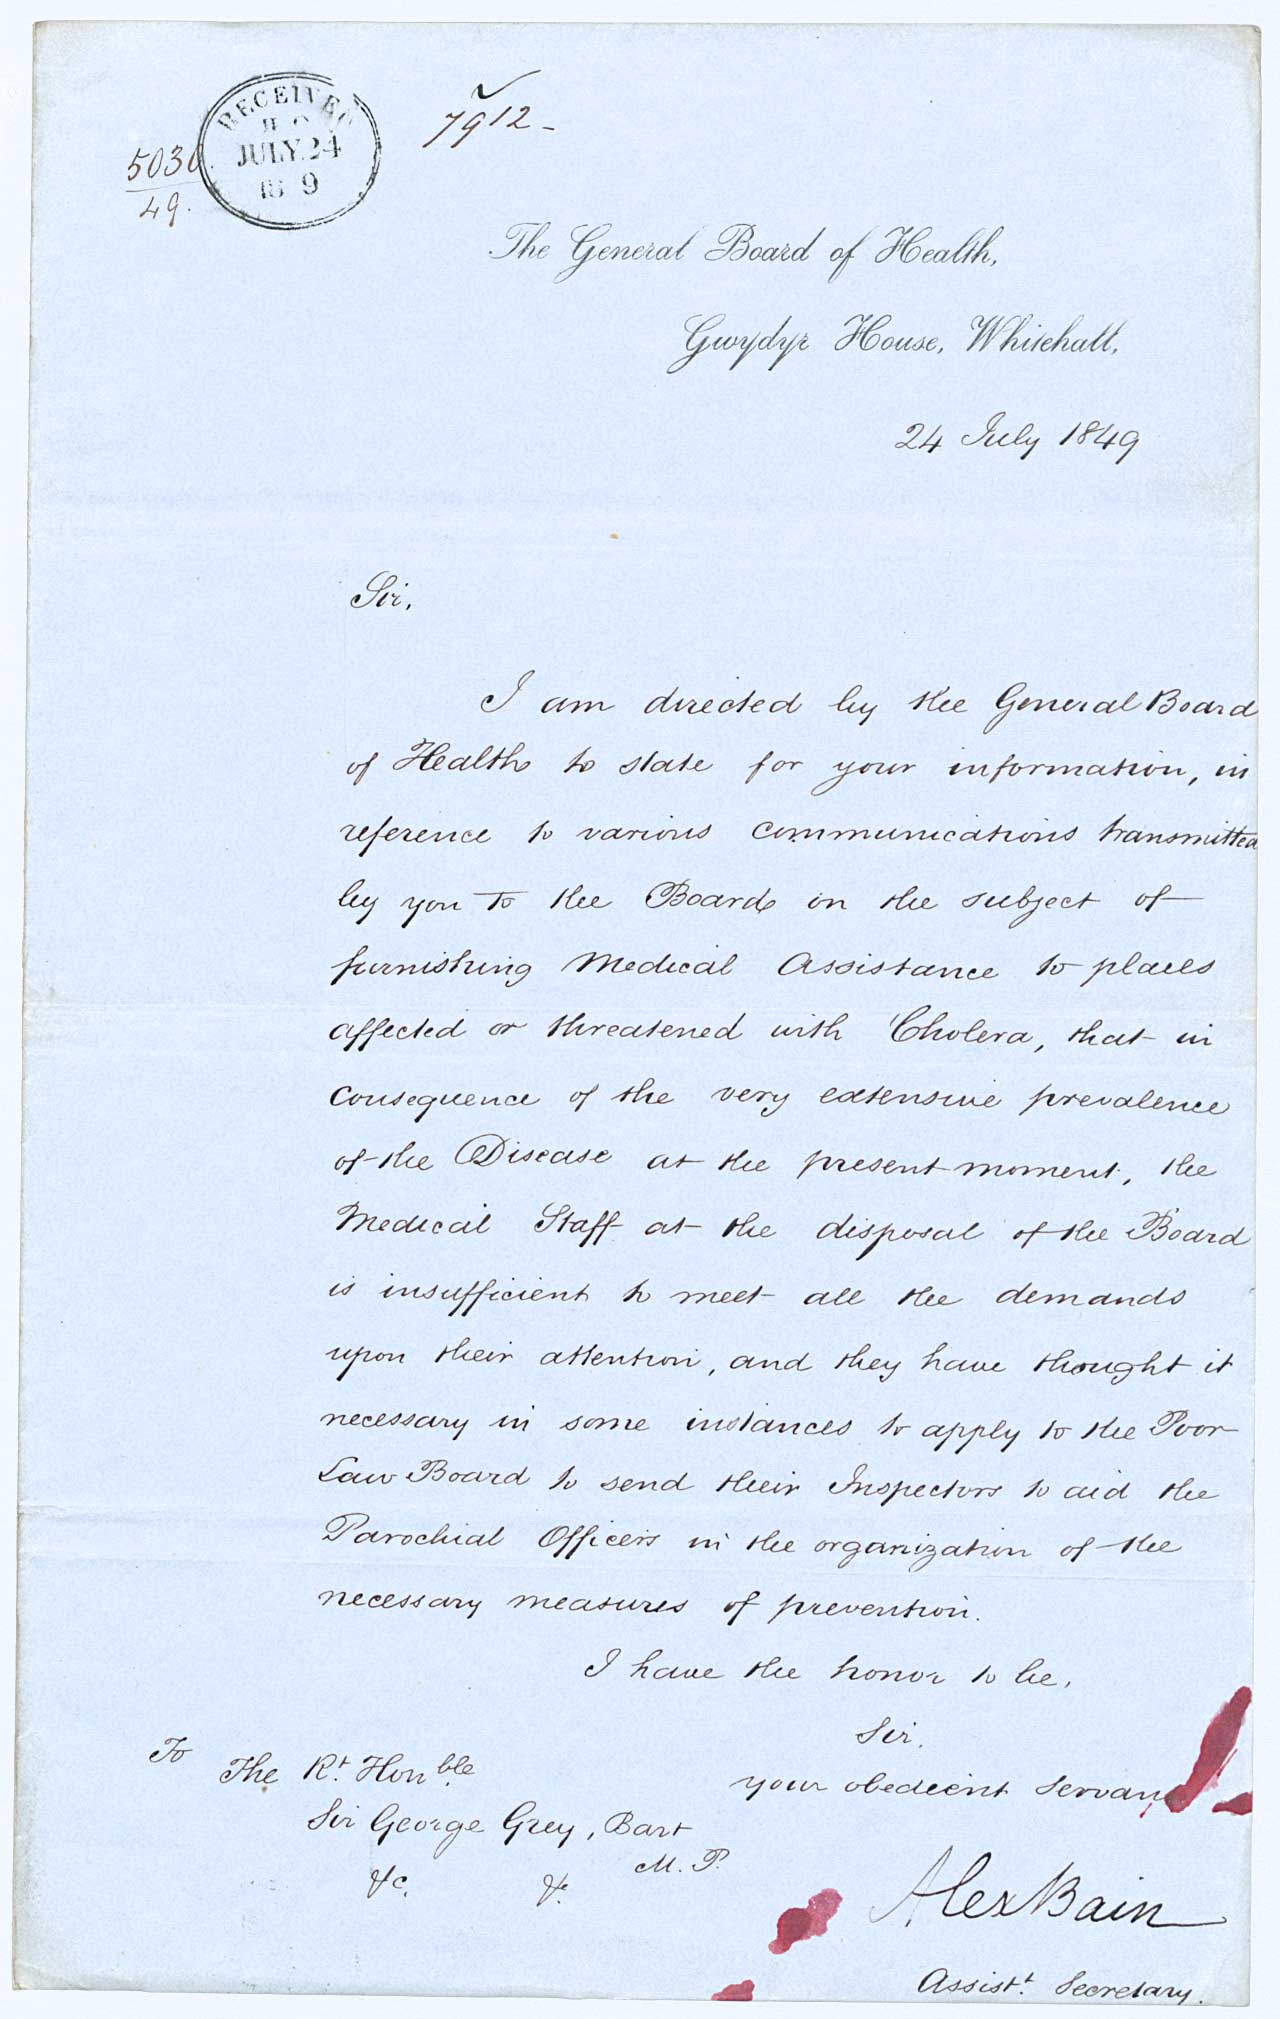 RECEIVED
H O
JULY 24
18 9
7912
49.
The General Board of Health,
Gwydyr House, Whitehall,
24 July 1849
Sir,
I am directed by the General Board
of Health to state for your information, in
reference to various communications transmitted
by you to the Board on the subject of
furnishing Medical Assistance to places
affected or threatened with Cholera, that in
consequence of the very extensive prevalence
of the Disease at the present moment, the
Medical Staff at the disposal of the Board
is insufficient to meet all the demands
upon their attention, and they have thought it
necessary in some instances to apply to the Poor
Law Board to send their Inspectors to aid the
Parochial Officers in the organization of the
necessary measures of prevention.
I have the honor to be,
Sir,
your obedient servan
Alex Bain
Assistt. Secretary.
To The Rt. Honble.
Sir George Grey, Bart
M. P.
&c. &c.